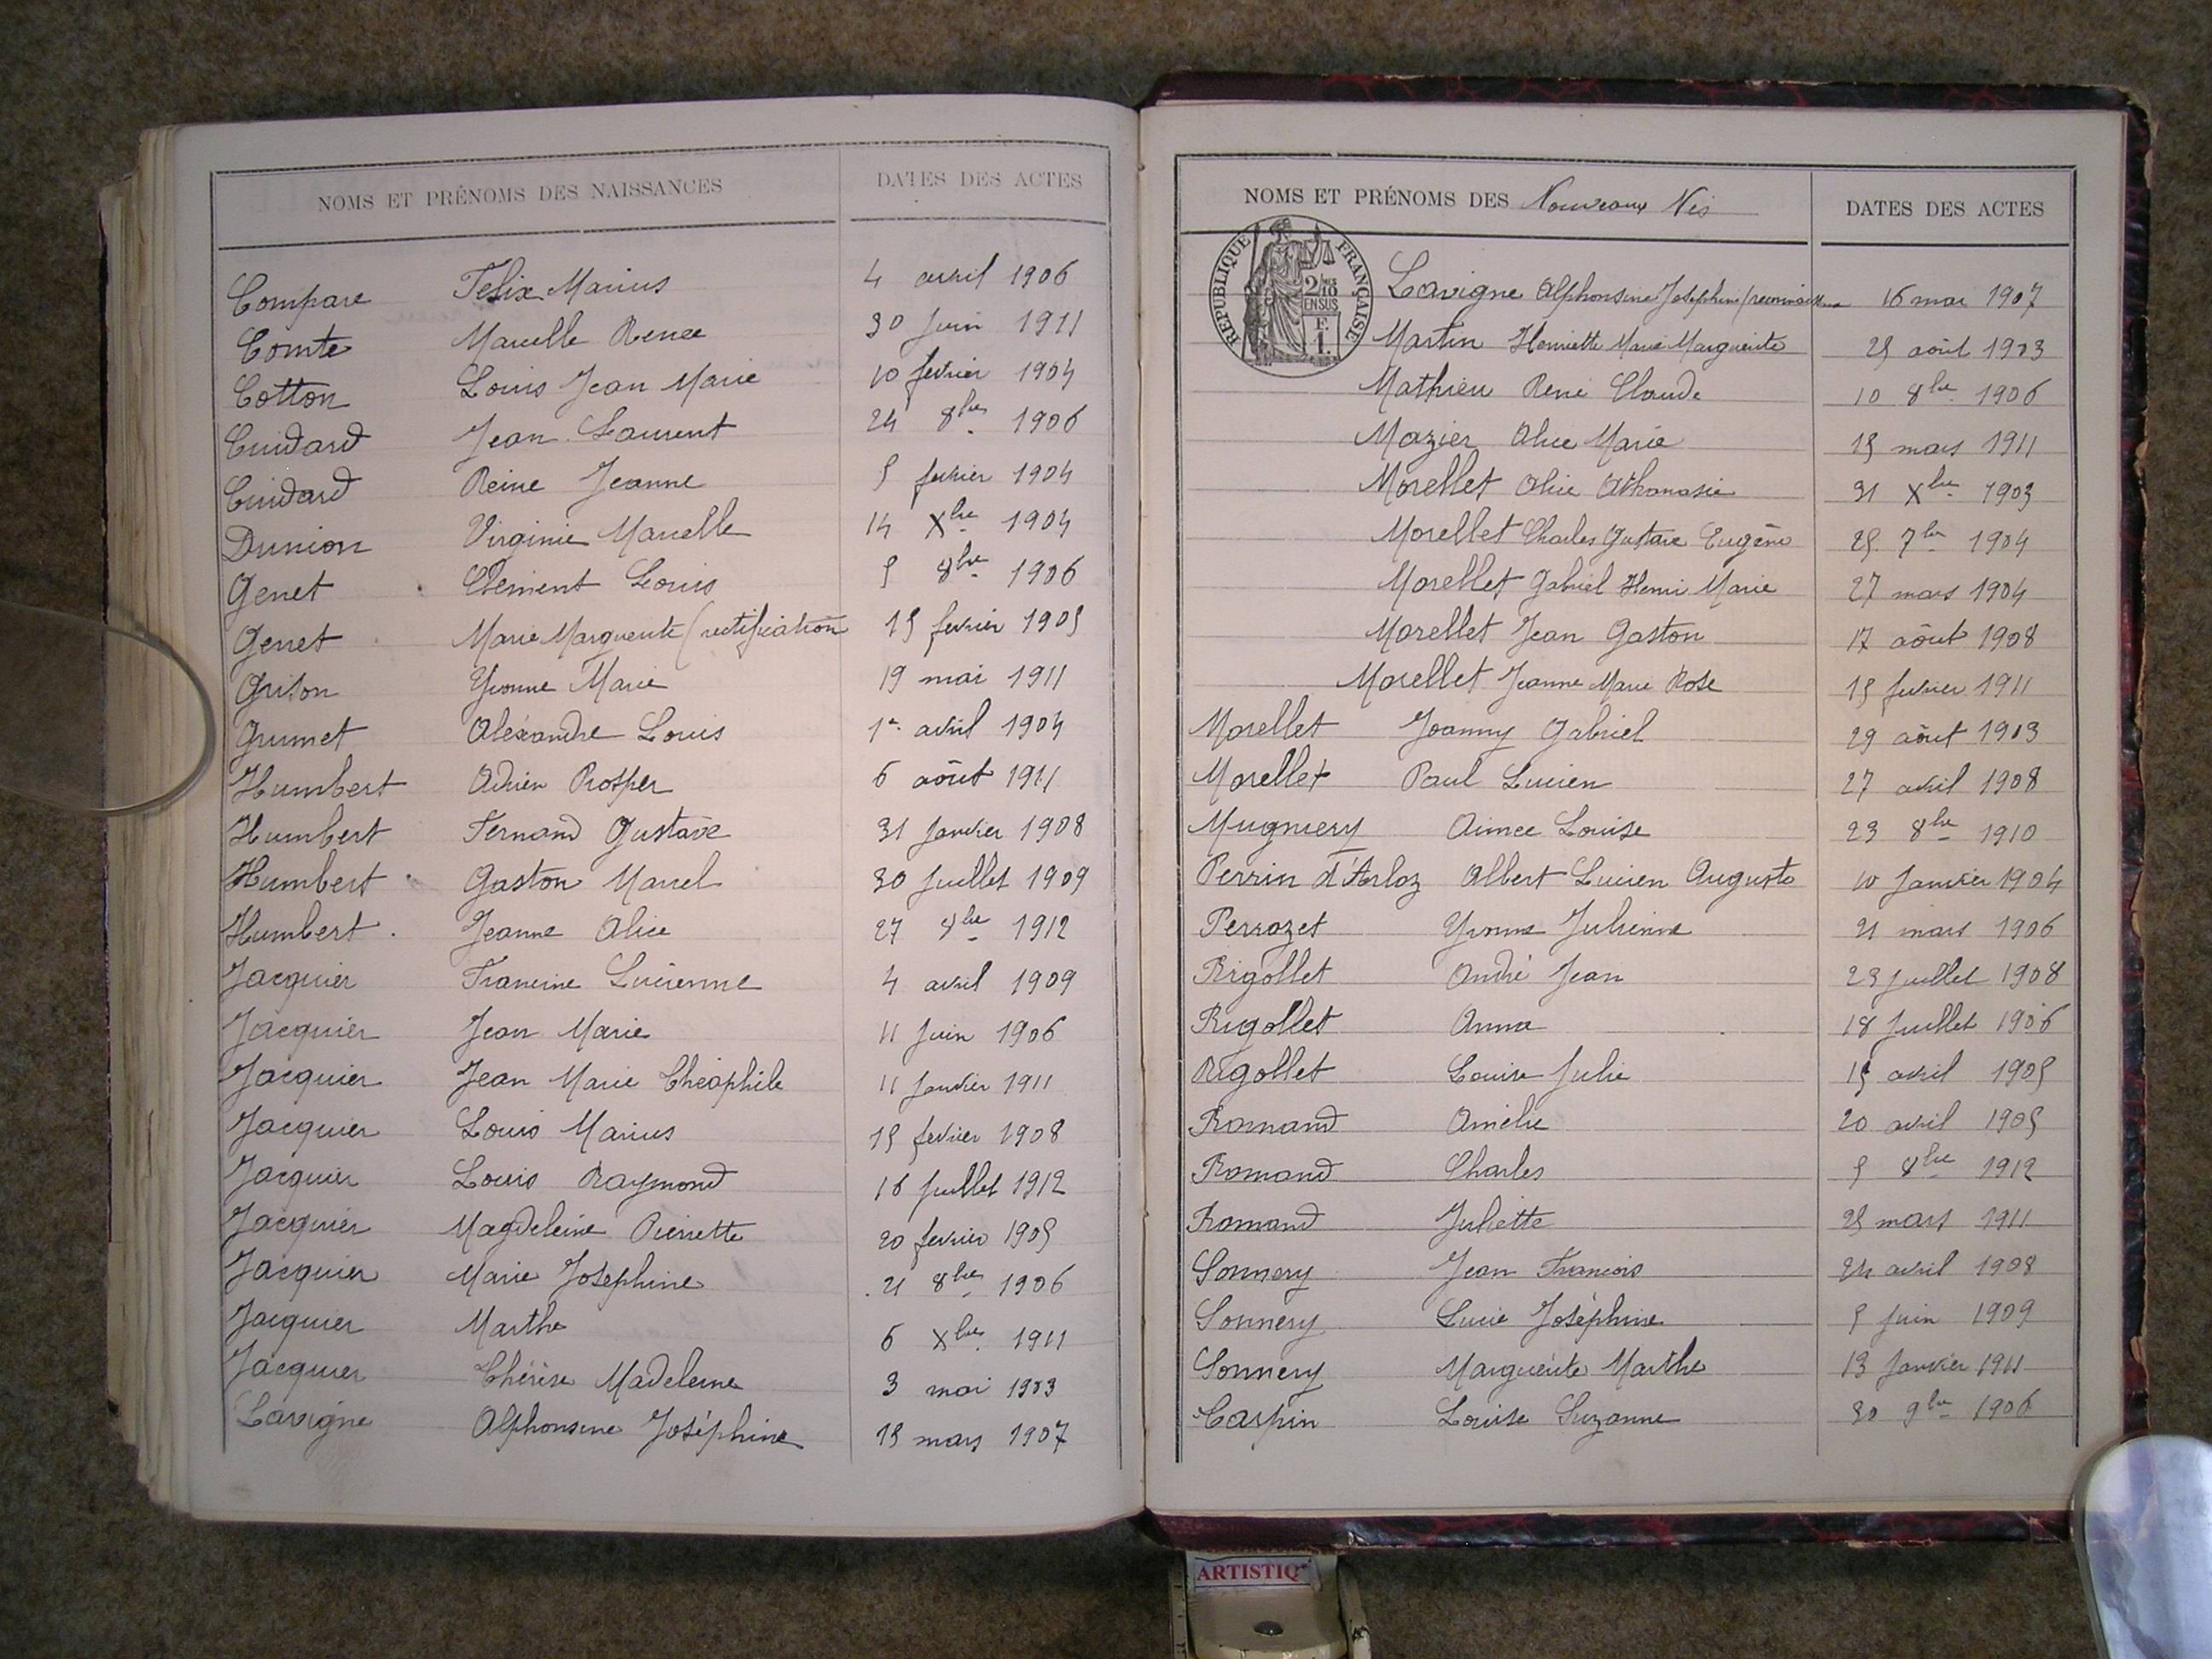 NOMS ET PRÉNOMS DES NAISSANCES DATES DES ACTES
Compare Felix Marius 4 avril 1906
Comte Marcelle Renee 30 Juin 1911
Cotton Louis Jean Marie 10 fevrier 1904
Cuidard Jean Laurent 24 8bre 1906
Cuidard Reine Jeanne 5 fevrier 1904
Dunion Virginie Marcelle 14 Xbre 1904
Genet Clement Louis 5 8bre 1906
Genet Marie Marguerite (rectification 15 fevrier 1905
Griton Yvonne Marie 19 mai 1911
Grumet Aléxandre Louis 1er avril 1904
Humbert Adrien Prosper 6 août 1911
Humbert Fernand Gustave 31 Janvier 1908
Humbert Gaston Marcel 30 Juillet 1909
Humbert Jeanne Alice 27 8bre 1912
Jacquier Francine Lucienne 4 avril 1909
Jacquier Jean Marie 11 Juin 1906
Jacquier Jean Marie Théophile 11 Janvier 1911
Jacquier Louis Marius 15 fevrier 1908
Jacquier Louis Raymond 16 Juillet 1912
Jacquier Magdeleine Pierrette 20 fevrier 1905
Jacquier Marie Josephine 21 8bre 1906
Jacquier Marthe 6 Xbre 1911
Jacquier Thérèse Madeleine 3 mai 1903
Lavigne Alphonsine Joséphine 15 mars 1907
NOMS ET PRÉNOMS DES Nouveaux Nés DATES DES ACTES
RÉPUBLIQUE FRANÇAISE
2/10 EN SUS
F. 1.
Lavigne Alphonsine Josephine (reconnaissance 16 mai 1907
Martin Henriette Marie Marguerite 25 août 1903
Mathieu René Claude 10 8bre 1906
Mazier Alice Marie 15 mars 1911
Morellet Alice Athanasie 31 Xbre 1903
Morellet Charles Gustave Eugène 25 7bre 1904
Morellet Gabriel Henri Marie 27 mars 1904
Morellet Jean Gaston 17 août 1908
Morellet Jeanne Marie Rose 15 fevrier 1911
Morellet Joanny Gabriel 29 août 1903
Morellet Paul Lucien 27 avril 1908
Mugniery Aimee Louise 23 8bre 1910
Perrin d'Arloz Albert Lucien Auguste 10 Janvier 1904
Perrozet Yvonne Julienne 21 mars 1906
Rigollet André Jean 23 Juillet 1908
Rigollet Anna 18 Juillet 1906
Rigollet Louise Julie 15 avril 1905
Romand Amélie 20 avril 1905
Romand Charles 5 8bre 1912
Romand Juliette 25 mars 1911
Sonnery Jean Francois 24 avril 1908
Sonnery Lucie Joséphine 5 Juin 1909
Sonnery Marguerite Marthe 13 Janvier 1911
Carpin Louise Suzanne 30 9bre 1906
ARTISTIQ